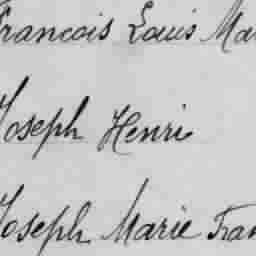 Francois Louis Mar
Joseph Henri
Joseph Marie Fran